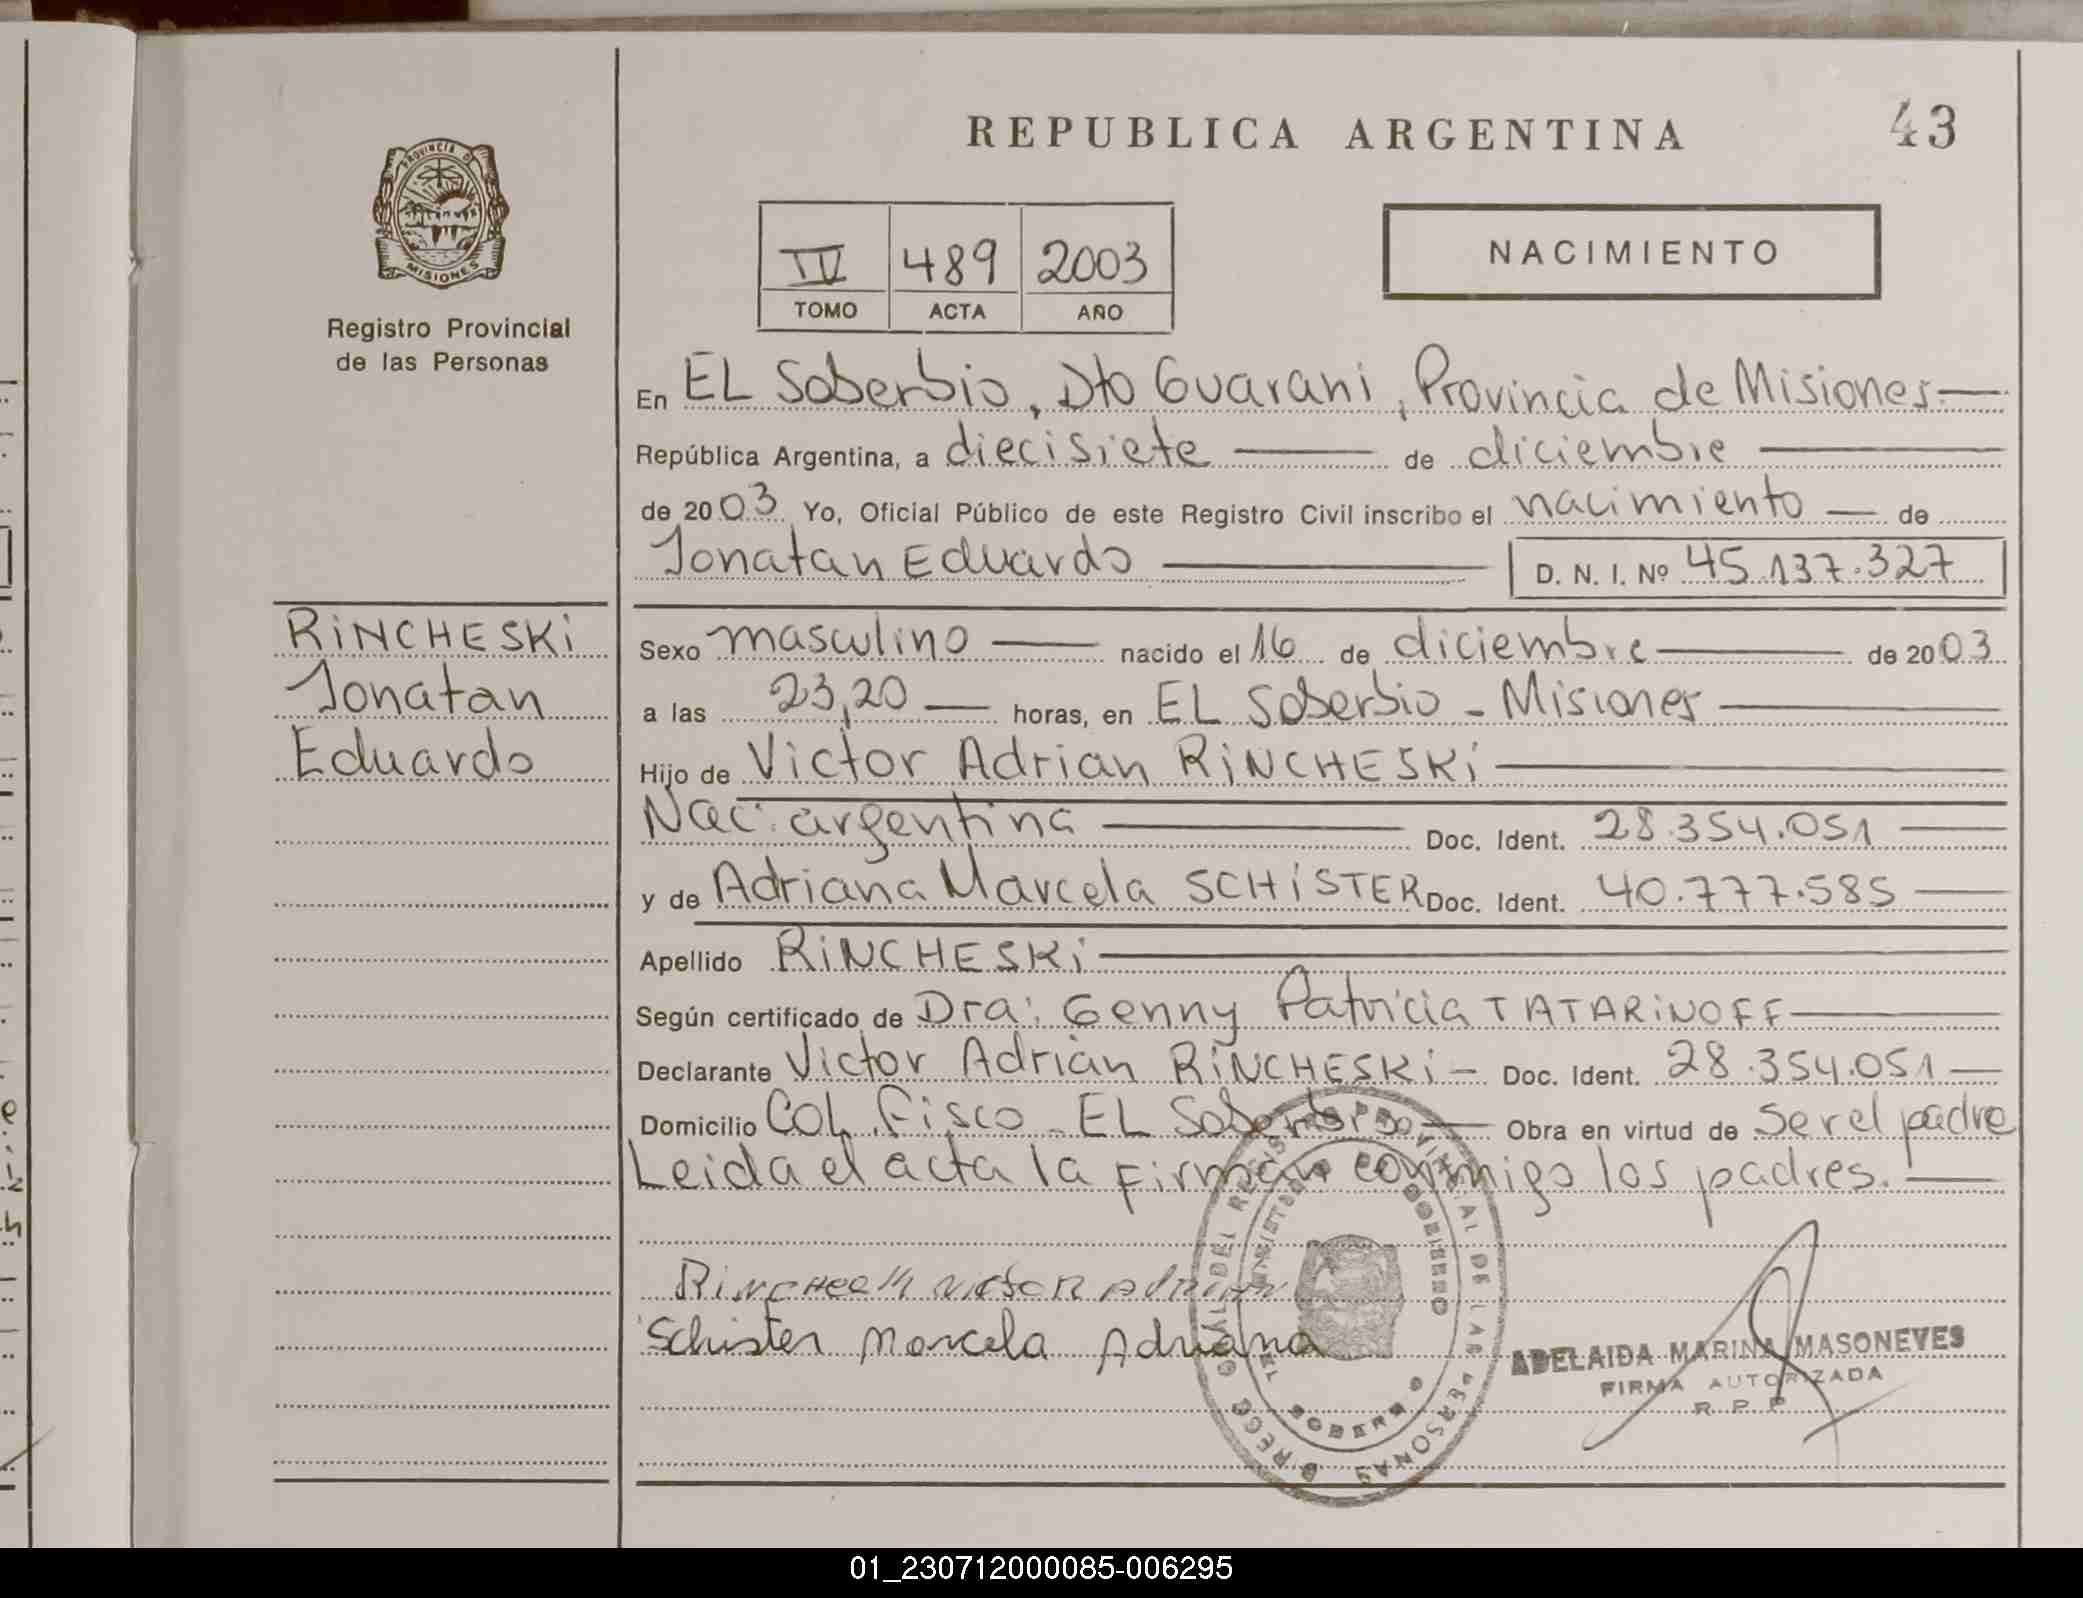 REPUBLICA ARGENTINA
43
PROVINCIA D
MISIONES
Registro Provincial
de las Personas
IV 489 2003
TOMO ACTA AÑO
NACIMIENTO
En EL Soberbio, Dto Guarani, Provincia de Misiones
República Argentina, a diecisiete de diciembre
de 2003 Yo, Oficial Público de este Registro Civil inscribo el nacimiento de
Jonatan Eduardo D. N. I. Nº 45.137.327
RiNCHESKi
Jonatan
Eduardo
Sexo masculino nacido el 16 de diciembre de 2003
a las 23,20 horas, en EL Soberbio - Misiones
Hijo de Victor Adrian RiNCHESKi
Nac: argentina Doc. Ident. 28.354.051
y de Adriana Marcela SCHiSTER Doc. Ident. 40.777.585
Apellido RiNCHESKi
Según certificado de Dra: Genny Patricia TATARiNOFF
Declarante Victor Adrian RiNCHESKi - Doc. Ident. 28.354.051
Domicilio Col. Fisco - EL Soberbio Obra en virtud de Ser el padre
Leida el acta la firman conmigo los padres.
Victor Adrian
Schister Marcela Adriana
ADELAIDA MARINA MASONEVES
FIRMA AUTORIZADA
R. P. P.
GRAL DEL REGISTRO PROVINCIAL DE LAS PERSONAS
MINISTERIO DE GOBIERNO
01_230712000085-006295